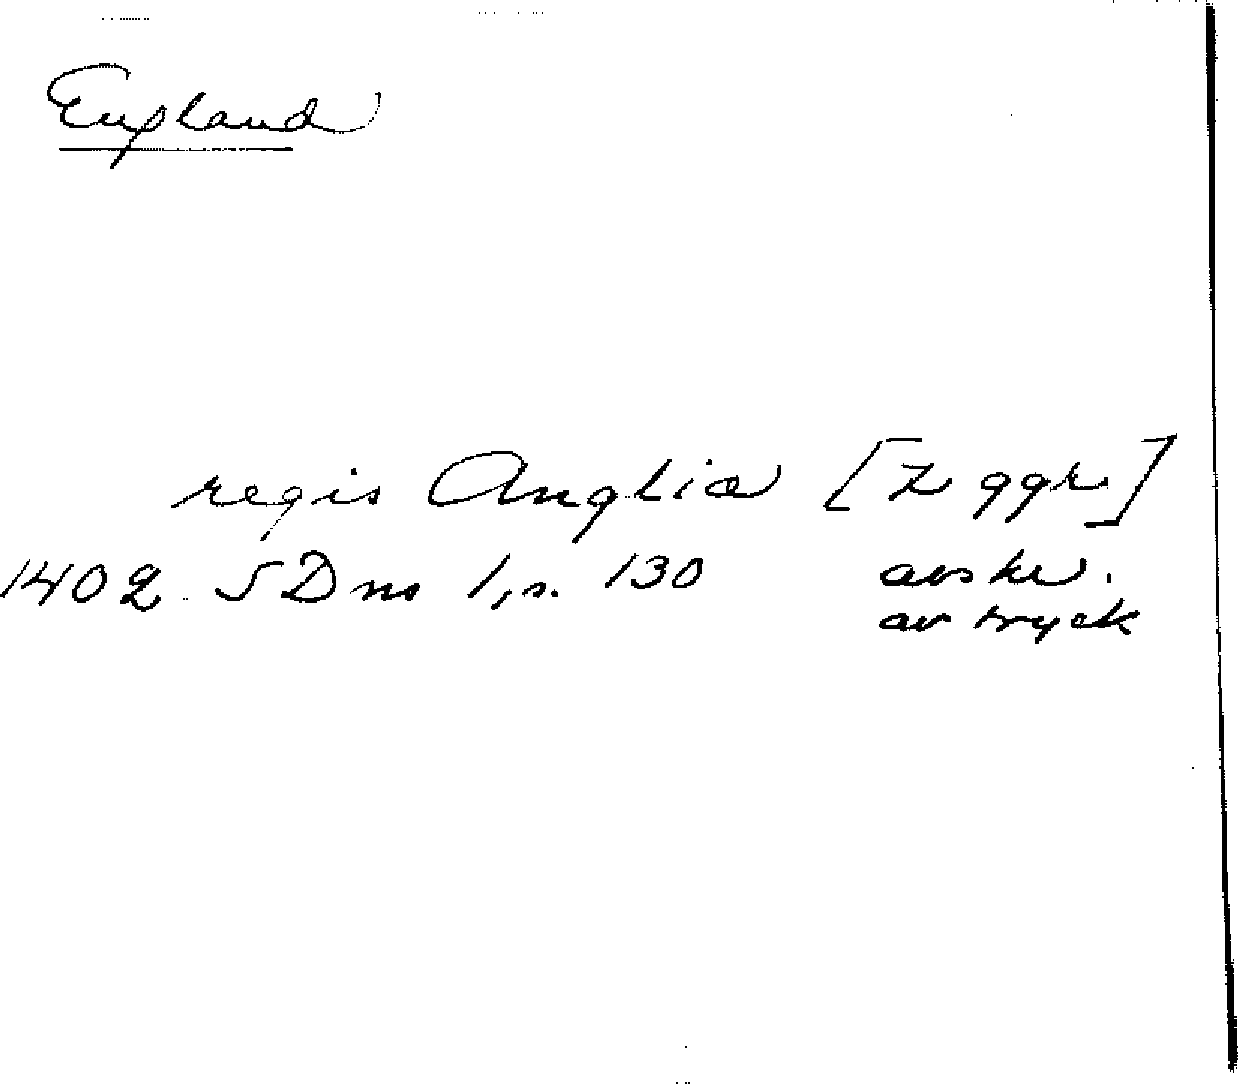 England
regis Angliæ [2 ggr.]
1402 SDns 1, s. 130 avskr.
av tryck